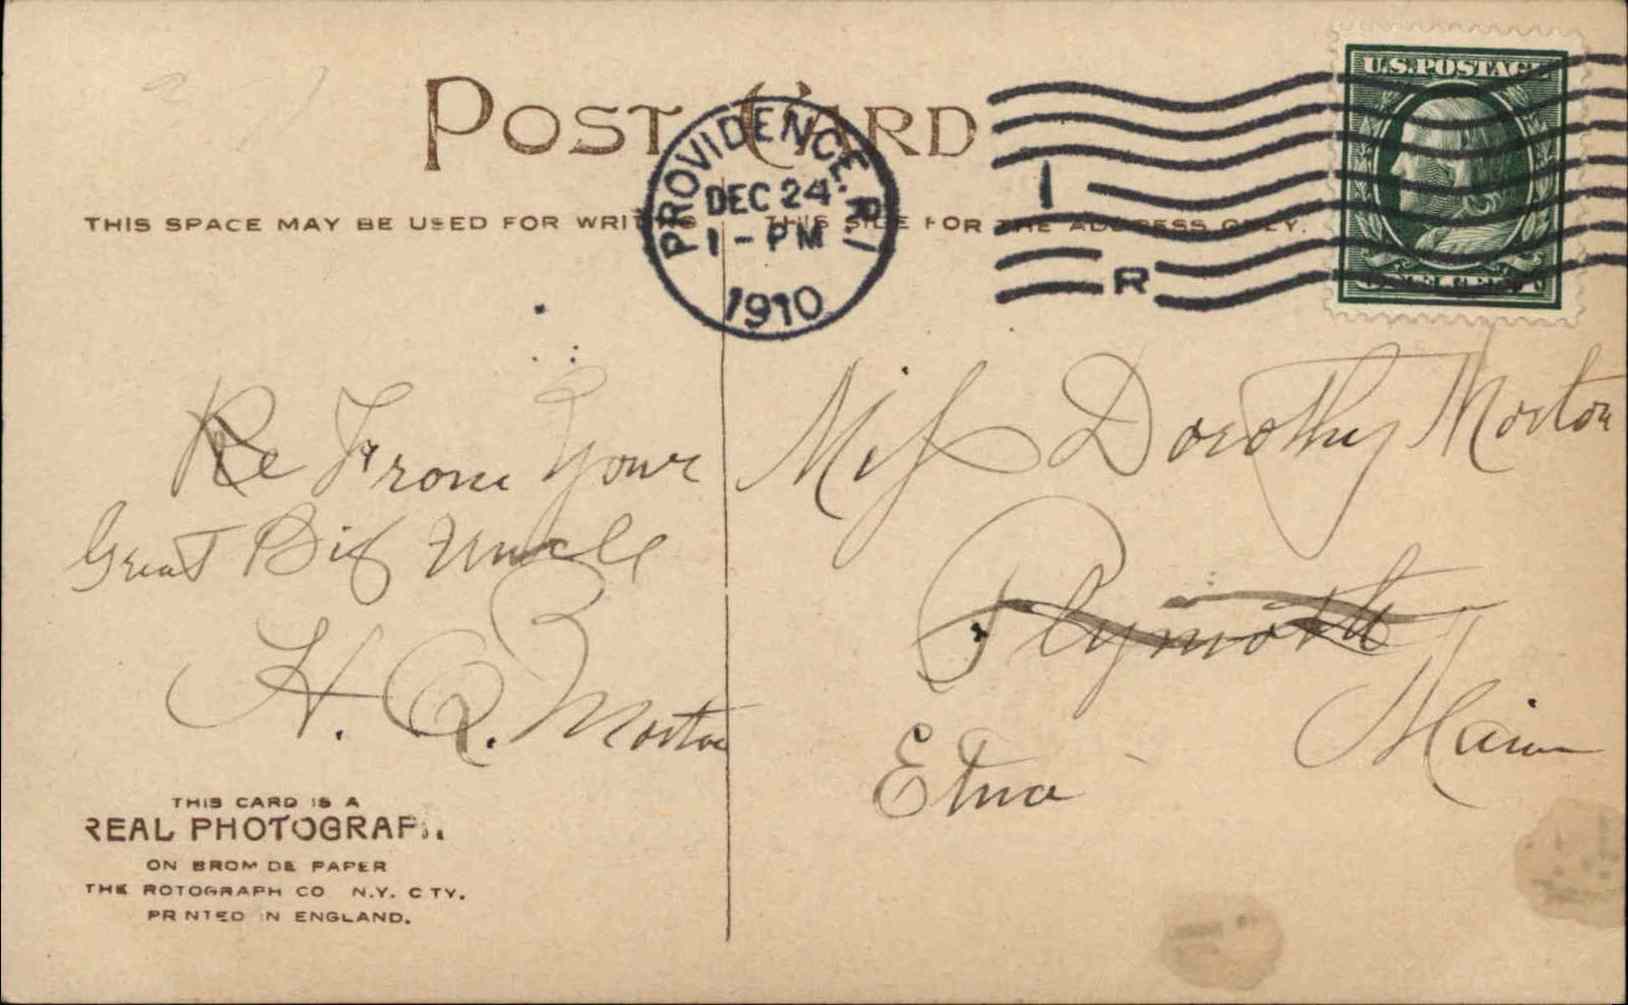 POST CARD
THIS SPACE MAY BE USED FOR WRITING
THIS SIDE FOR THE ADDRESS ONLY.
PROVIDENCE, R.I.
DEC 24
1-PM
1910
1
R
U.S.POSTAGE
Re From Your
Great Big Uncle
H. Q. Morton
Miss Dorothy Morton
Plymoth
Etna
Main
THIS CARD IS A
REAL PHOTOGRAPH
ON BROMIDE PAPER
THE ROTOGRAPH CO N.Y. CITY.
PRINTED IN ENGLAND.